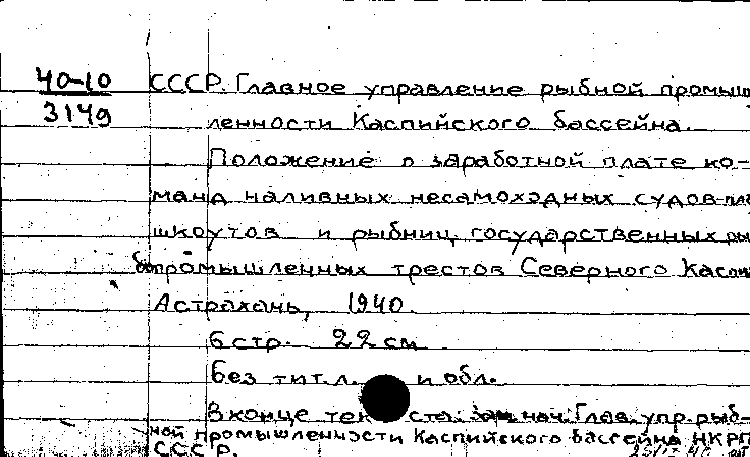 40-10
3149
СССР. Главное управление рыбной промыш
ленности Каспийского бассейна.
Положение о заработной плате ко-
манд наливных несамоходных судов-
шкоутов и рыбниц государственных ры
бопромышленных трестов Северного
Астрахань, 1940.
6 стр. 22 см.
без тит. л. и обл.
В конце текста: зам. нач. Глав. упр. рыб-
ной промышленности Каспийского бассейна НКРП
СССР.